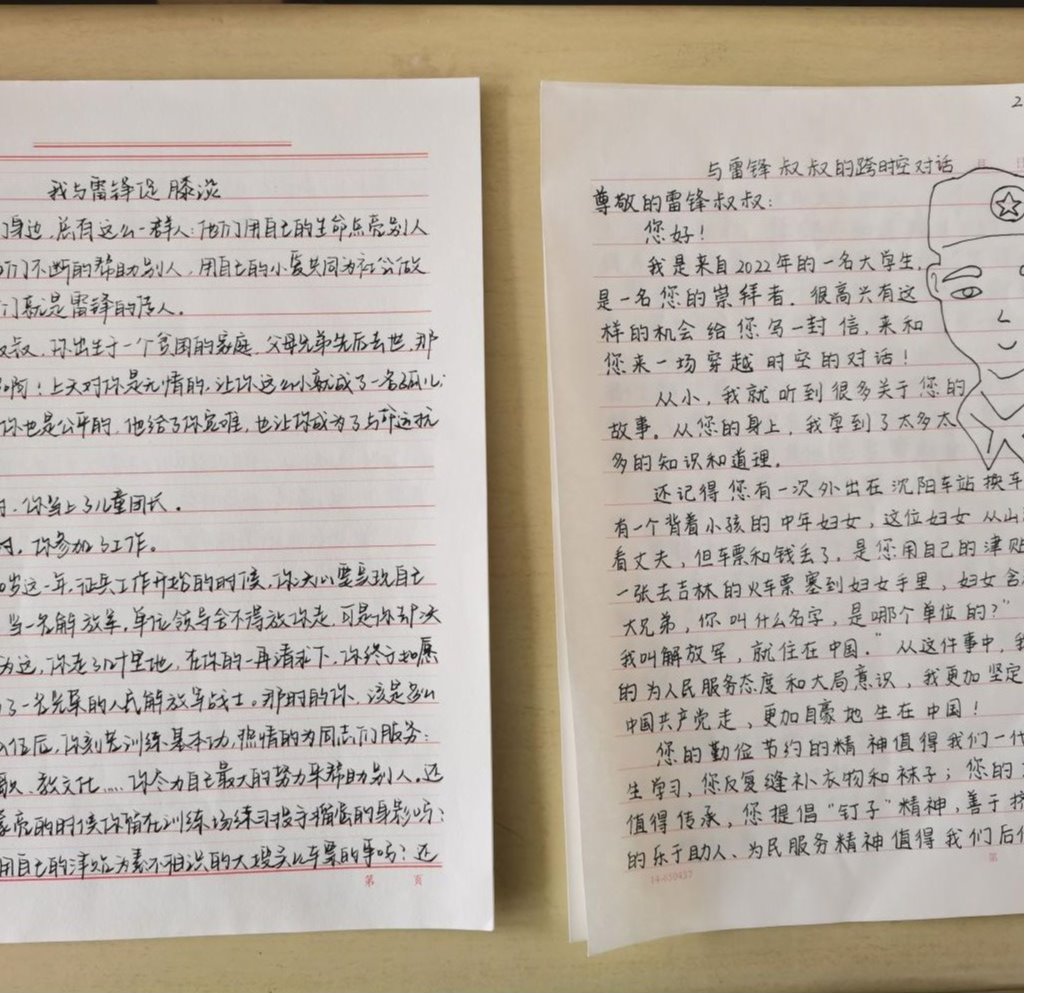 我与雷锋促膝谈
们身边，总有这么一群人：他们用自己的生命点亮别人
们不断的帮助别人，用自己的小爱共同为社会做
们就是雷锋的传人。
叔叔，你出生于一个贫困的家庭，父母兄弟先后去世，那
啊！上天对你是无情的，让你这么小就成了一名孤儿；
你也是公平的，他给了你苦难，也让你成为了与命运抗
时，你当上了儿童团长。
时，你参加了工作。
岁这一年，征兵工作开始的时候，你决心要实现自己
当一名解放军，单位领导舍不得放你走，可是你却决
为这，你走了几十里地，在你的一再请求下，你终于如愿
了一名光荣的人民解放军战士。那时的你，该是多么
入伍后，你刻苦训练基本功，热情的为同志们服务：
教文化……你尽力自己最大的努力来帮助别人。还
亮的时候你留在训练场练习投手榴弹的身影吗？
用自己的津贴为素不相识的大嫂买火车票的事吗？还
第 页
2
与雷锋叔叔的跨时空对话
尊敬的雷锋叔叔：
您好！
我是来自2022年的一名大学生，
是一名您的崇拜者．很高兴有这
样的机会给您写一封信，来和
您来一场穿越时空的对话！
从小，我就听到很多关于您的
故事。从您的身上，我学到了太多太
多的知识和道理。
还记得您有一次外出在沈阳车站换车
有一个背着小孩的中年妇女，这位妇女从山
看丈夫，但车票和钱丢了，是您用自己的津贴
一张去吉林的火车票塞到妇女手里，妇女含
大兄弟，你叫什么名字，是哪个单位的？"
我叫解放军，就住在中国。"从这件事中，我
的为人民服务态度和大局意识，我更加坚定
中国共产党走，更加自豪地生在中国！
您的勤俭节约的精神值得我们一代
生学习，您反复缝补衣物和袜子；您的
值得传承，您提倡"钉子"精神，善于挤
的乐于助人、为民服务精神值得我们后
14-650437
第